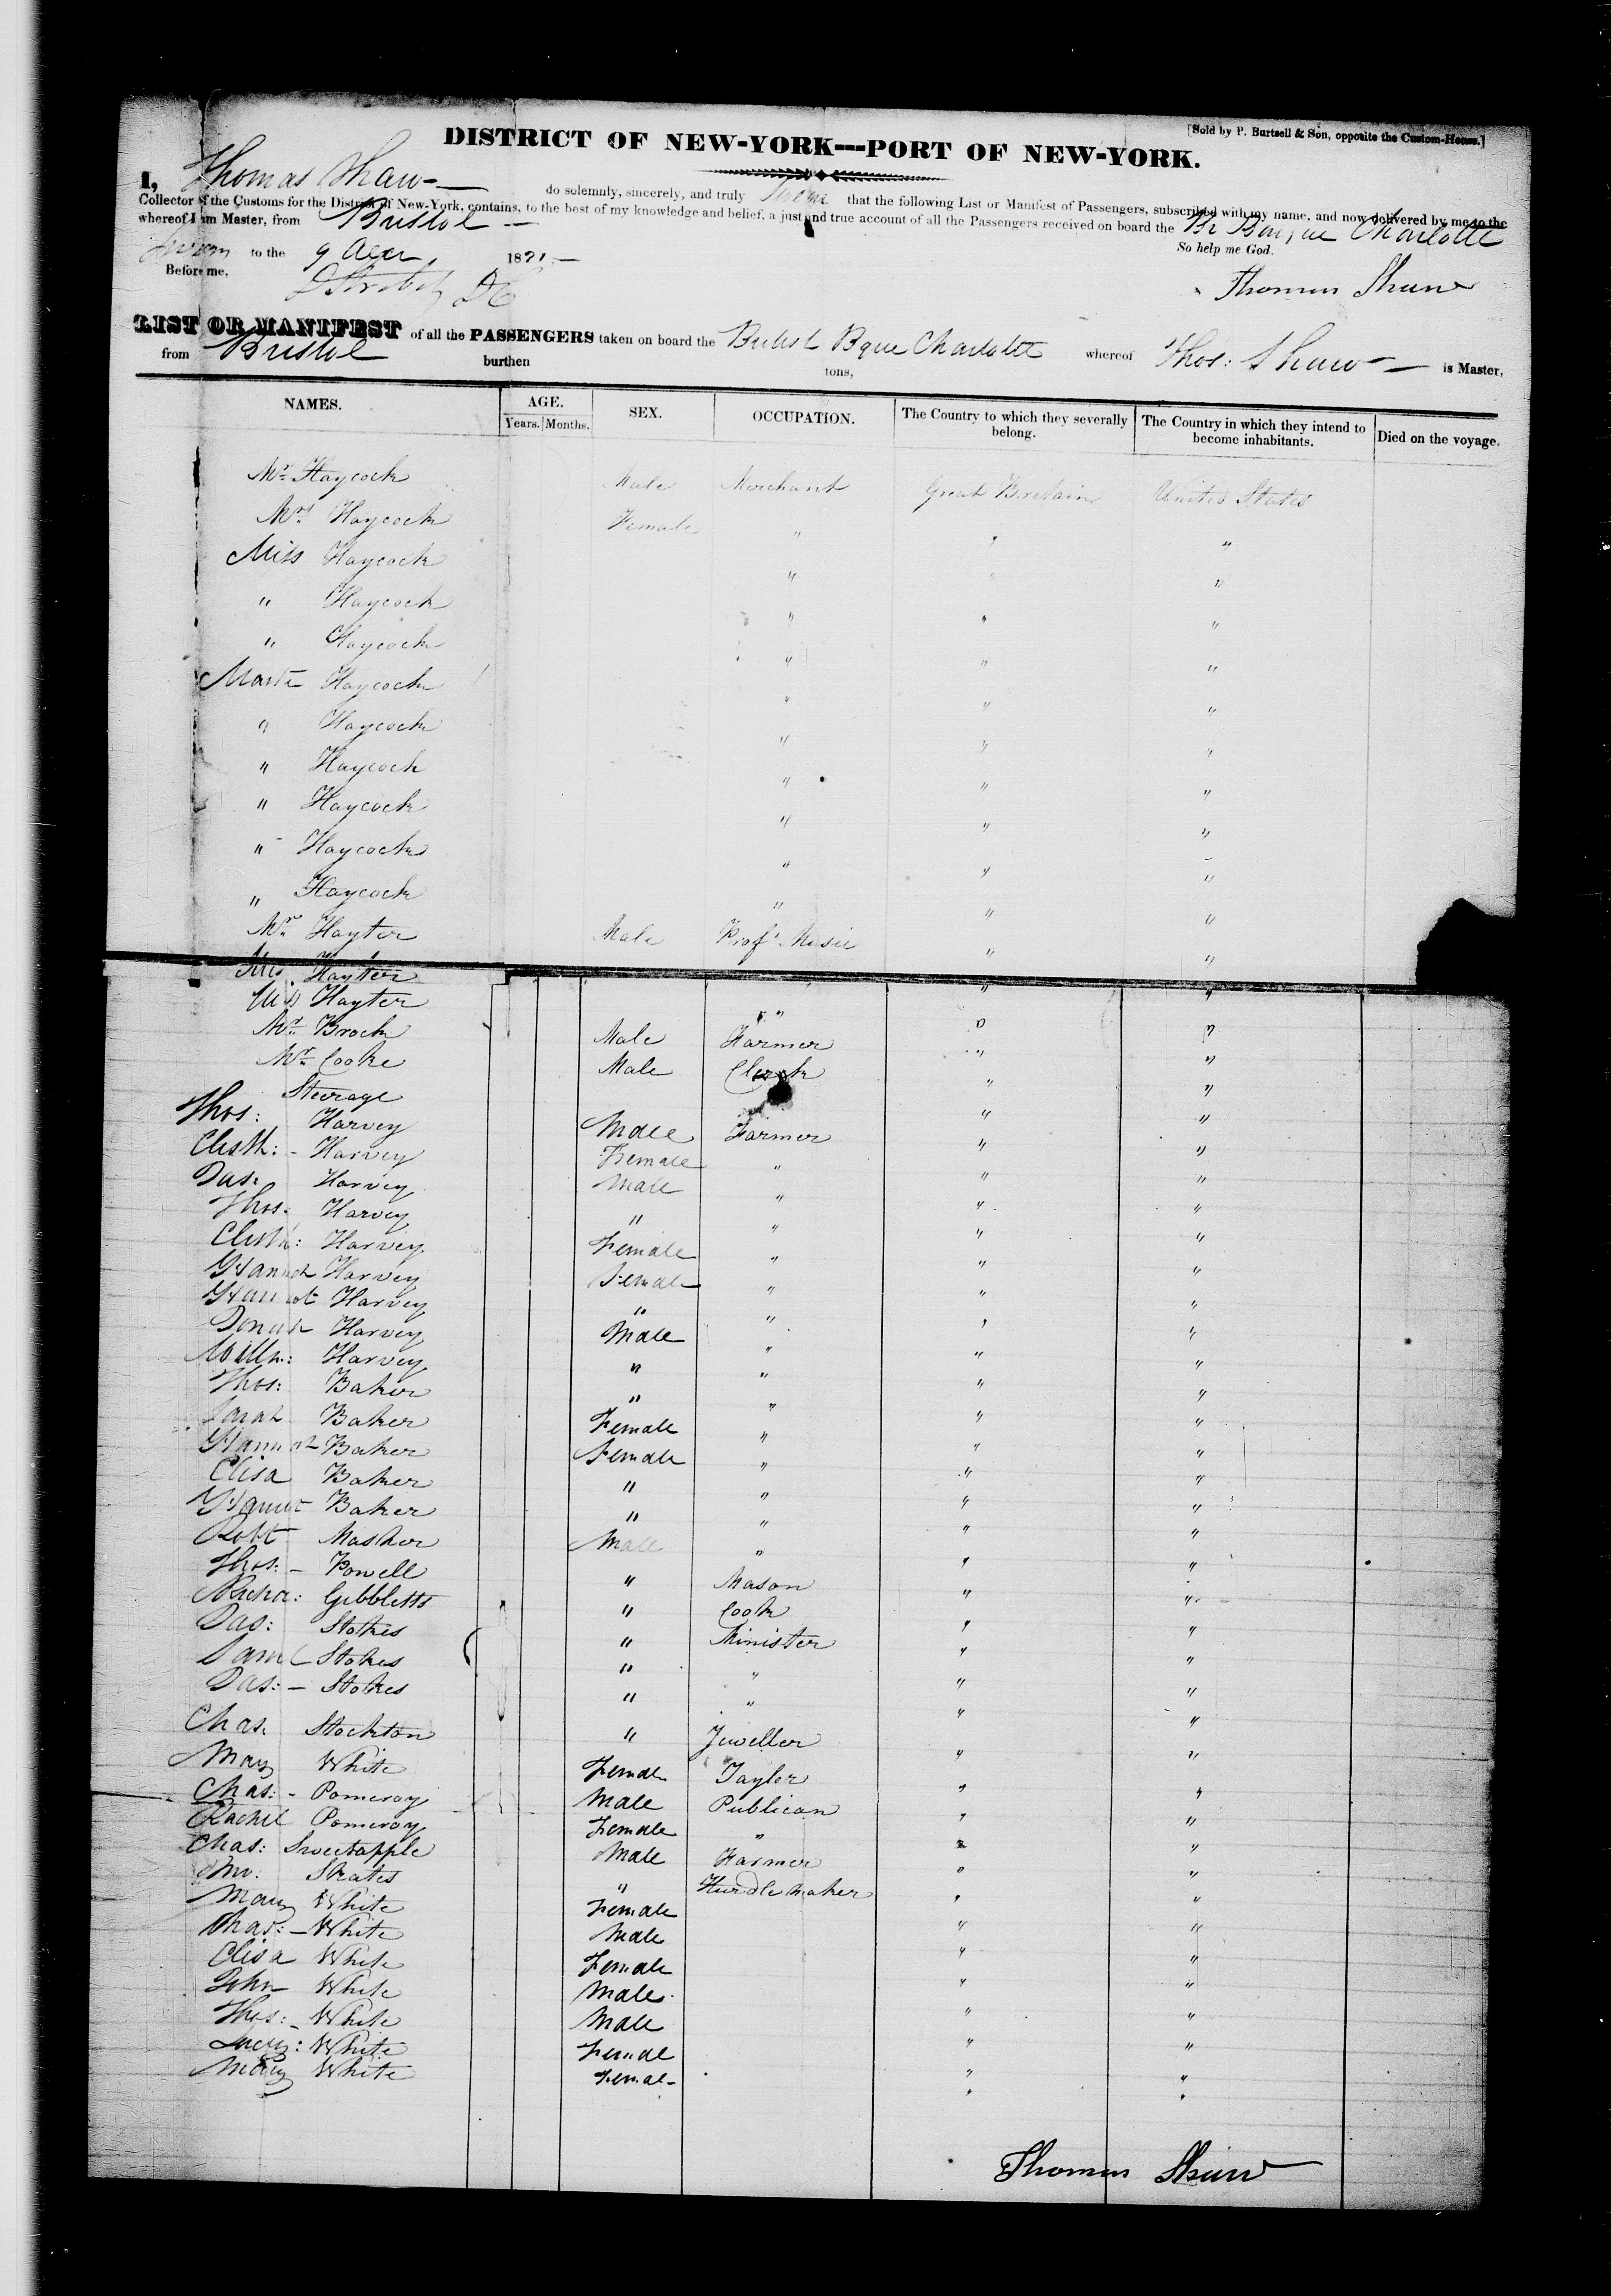 [Sold by P. Burtsell & Son, opposite the Custom-House.]
DISTRICT OF NEW-YORK---PORT OF NEW-YORK.
I, Thomas Shaw do solemnly, sincerely, and truly swear that the following List or Manifest of Passengers, subscribed with my name, and now delivered by me to the
Collector of the Customs for the District of New-York, contains, to the best of my knowledge and belief, a just and true account of all the Passengers received on board the Br Barque Charlotte
whereof I am Master, from Bristol
So help me God.
Sworn to the 9 1831
Before me, Thomas Shaw
LIST OR MANIFEST of all the PASSENGERS taken on board the British Bque Charlotte whereof Thos: Shaw is Master,
from Bristol burthen tons,
NAMES. AGE. SEX. OCCUPATION. The Country to which they severally belong. The Country in which they intend to become inhabitants. Died on the voyage.
Years. Months.
Mr. Haycock Male Merchant Great Britain United States
Mrs Haycock Female " " "
Miss Haycock " " "
" Haycock " " "
" Haycock " " "
Mastr Haycock " " "
" Haycock " " "
" Haycock " " "
" Haycock " " "
" Haycock " " "
" Haycock " " "
Mr. Hayter Male Profr Music " "
Mrs Hayter " "
Miss Hayter " " "
Mr. Brock Male Farmer " "
Mr. Cooke Male Clerk " "
Steerage
Thos: Harvey Male Farmer " "
Elisth: - Harvey Female " " "
Jas: Harvey Male " " "
Thos: Harvey " " " "
Elisth: Harvey Female " " "
Hannah Harvey Female " " "
Harvey " " " "
Harvey Male " " "
Willm: Harvey " " " "
Thos: Baker " " " "
Sarah Baker Female " " "
Hannah Baker Female " " "
Elisa Baker " " " "
Baker " " " "
Robt Masher Male " " "
Thos: - Powell " Mason " "
Richd: Gibbletts " Cook " "
Jas: Stokes " Minister " "
Saml Stokes " " " "
Jas: - Stokes " " " "
Chas. Stockton " Jeweller " "
Mary White Female Taylor " "
Chas: - Pomeroy Male Publican " "
Rachel Pomeroy Female " " "
Chas: Sweetapple Male Farmer " "
Jno: Skates " Hurdle maker " "
Mary White Female " "
Chas: - White Male " "
Elisa White Female " "
John White Male " "
Thos: - White Male " "
Lucy: White Femal " "
Mary White Femal " "
Thomas Shaw